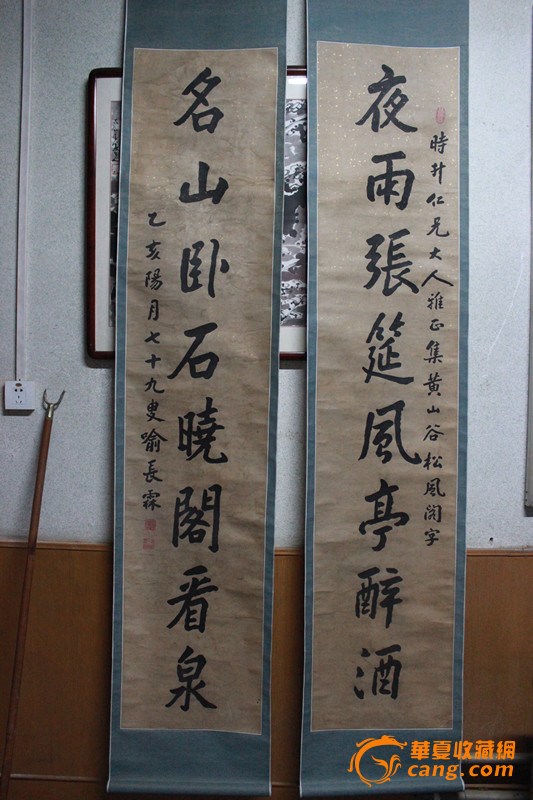 時升仁兄大人雅正集黃山谷松風閣字
夜雨張筵風亭醉酒
名山卧石曉閣看泉
乙亥陽月七十九叟喻長霖
華夏收藏網
cang.com